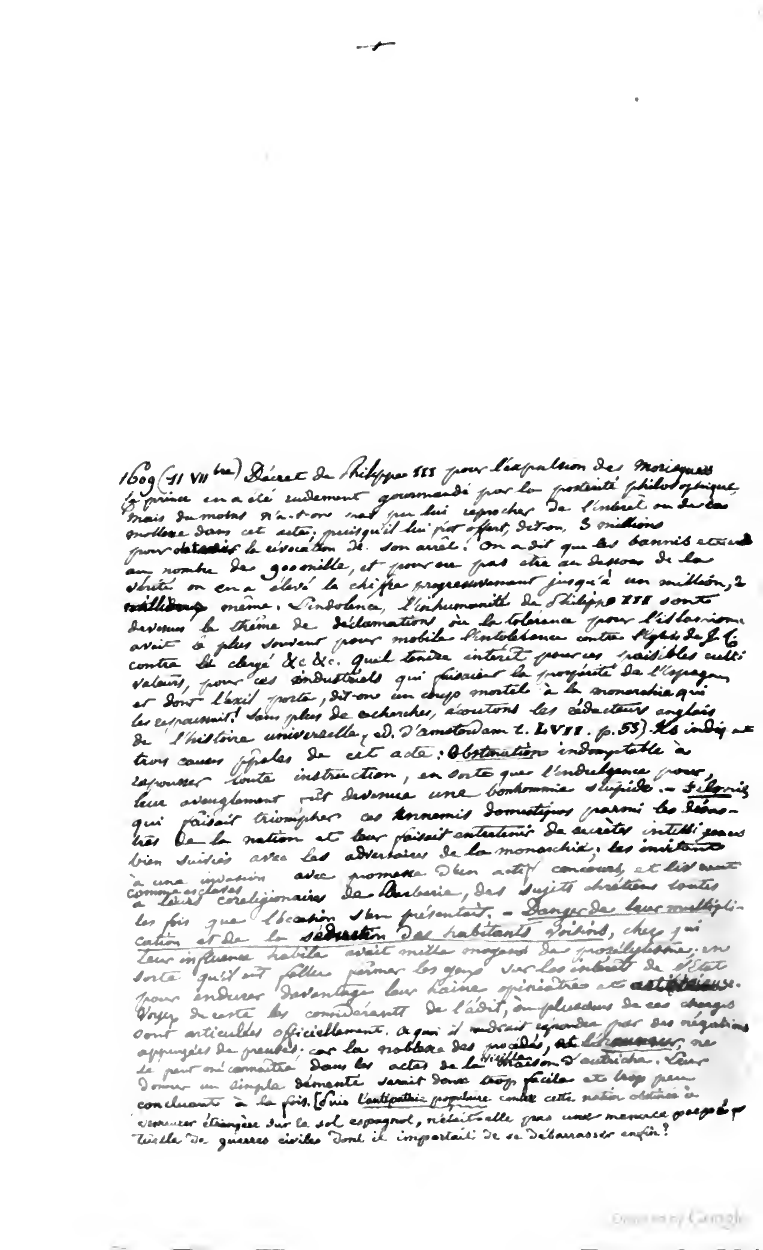 1609 (11 VII bre) Décret de Philippe III pour l'expulsion des Morisques
Ce prince en a été rudement gourmandé par la postérité philosophique,
mais du moins n'a-t-on pas pu lui reprocher de l'intérêt ou de la
mollesse dans cet acte, puisqu'il lui fut offert, dit-on, 3 millions
pour la révocation de son arrêt. On a dit que les bannis étaient
au nombre de 900,mille, et pour ne pas etre au dessous de la
vérité on en a élevé le chiffre progressivement jusqu'à un million, 2
millions même. L'indolence, l'inhumanité de Philippe III sont
devenus le thème de déclamations où la tolérance pour l'islamisme
avait le plus souvent pour mobile l'intolérance contre l'Eglise de J. C.
contre le clergé &c &c. Quel tendre intérêt pour ces paisibles culti-
vateurs, pour ces industriels qui faisaient la prospérité de l'Espagne,
et dont l'exil porta, dit-on un coup mortel à la monarchie qui
les repoussait! Sans plus de recherches, écoutons les rédacteurs anglais
de l'histoire universelle, (éd. d'amsterdam t. LVII. p. 55) Ils indiquent
trois causes ppales de cet acte: Obstination indomptable à
repousser toute instruction, en sorte que l'indulgence pour
leur aveuglement fût devenue une bonhommie stupide. – Félonie
qui faisait triompher ces Ennemis domestiques parmi les désas-
tres de la nation et leur faisait entretenir de secrètes intelligences
bien suivies avec les adversaires de la monarchie; les invitant
à une invasion avec promesse d'un actif concours, et livrant
comme esclaves
à leurs coreligionaires de Barberie, des sujets chrétiens toutes
les fois que l'occasion s'en présentait. – Danger de leur multipli-
cation et de la séduction des habitants voisins, chez qui
leur influence habile avait mille moyens de prosélytisme; en
sorte qu'il eût fallu fermer les yeux sur les intérêt de l'Etat
pour endurer davantage leur haine opiniâtre et
Voyez du reste les considérants de l'édit, où plusieurs de ces charges
sont articulées officiellement. Ce qui il faudrait répondre par des négations
appuyées de preuves; car la noblesse des procédés, et ne
se peut méconnaître dans les actes de la vieille maison d'autriche. Leur
donner un simple démenti serait donc trop facile et trop peu
concluant à la fois. [Puis l'antipathie populaire contre cette nation obstinée à
demeurer étrangère sur le sol espagnol, n'était-elle pas une menace perpé-
tuelle de guerres civiles dont il importait de se débarrasser enfin?
Digitized by Google